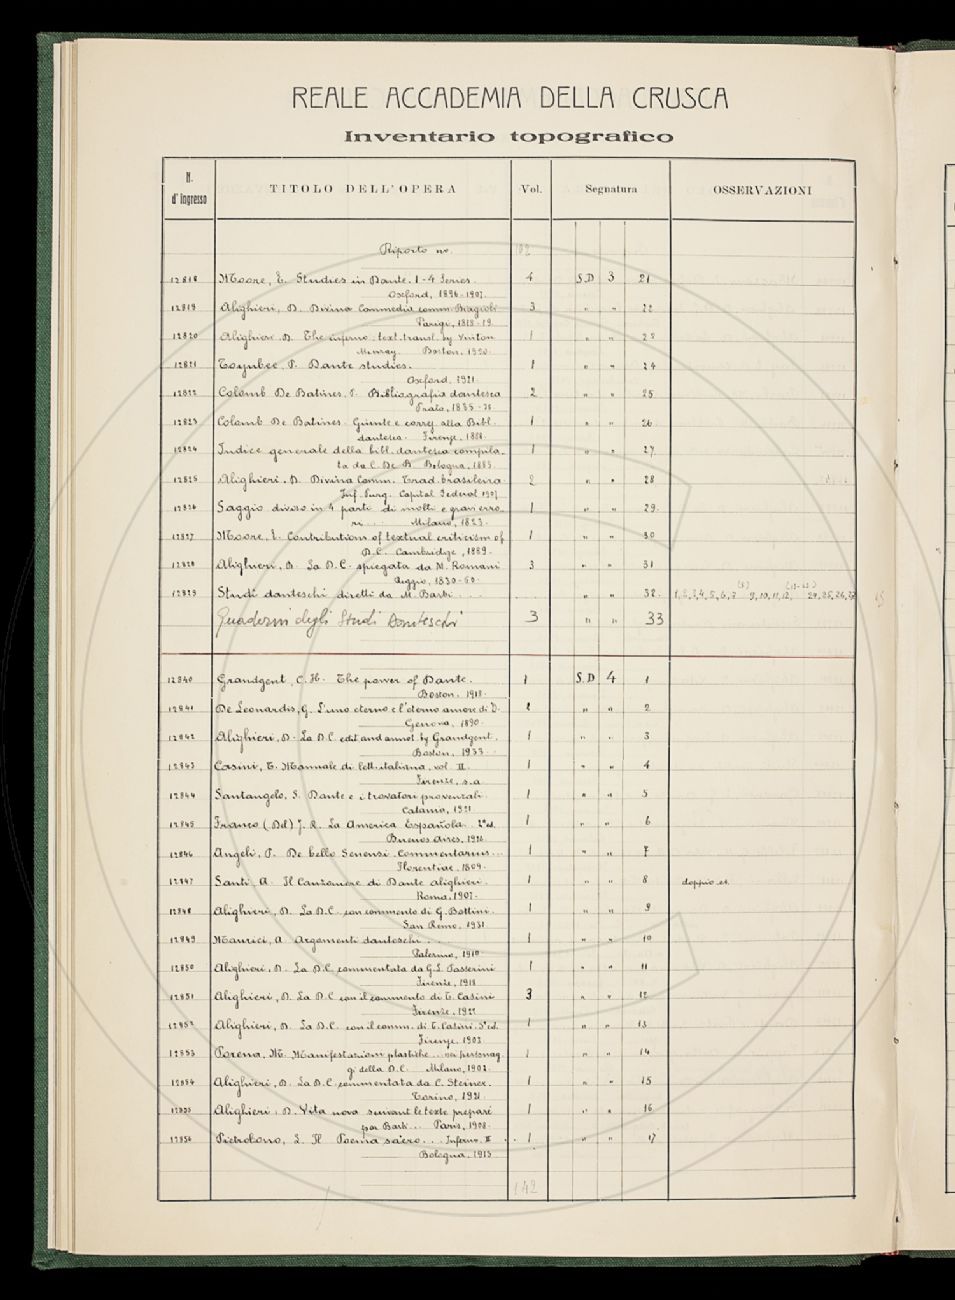 REALE ACCADEMIA DELLA CRUSCA
Inventario topografico
N. d'Ingresso TITOLO DELL'OPERA Vol. Segnatura OSSERVAZIONI
Riporto no. 102
12818 Moore, E. Studies in Dante. 1-4 Series. 4 S.D 3 21
Oxford, 1896-1907.
12819 Alighieri, D. Divina Commedia comm. Biagioli 3 " " 22
Parigi, 1818-19.
12820 Alighieri D. The inferno text. transl. by 1 " "
Boston, 1920.
12821 Toynbee, P. Dante studies. 1 " " 24
Oxford, 1921.
12822 Colomb De Batines, P. Bibliografia dantesca 2 " " 25
Prato, 1835-
12823 Colomb De Batines. Giunte e corrg. alla Bibl. 1 " " 26
dantesca. Firenze, 1888.
12824 Indice generale della bibl. dantesca compila- 1 " " 27
ta da C. De B. Bologna, 1883.
12825 Alighieri, D. Divina Comm. Trad. brasileira. 2 " " 28
Inf. Purg. Capital Federal 1907
12826 Saggio diviso in 4 parti di molti e gravi erro- 1 " " 29.
ri... Milano, 1823.
12827 Moore, E. Contributions of textual criticism of 1 " " 30
D.C. Cambridge, 1889.
12828 Alighieri, D. La D.C. spiegata da M. Romani 3 " " 31
Reggio, 1830-60.
12829 Studi danteschi diretti da M. Barbi ... " " 32. 1,2,3,4,5,6,7 9,10,11,12, 24,25,26,27
Quaderni degli Studi Danteschi 3 " " 33
12840 Grandgent, C.H. The power of Dante. 1 S.D 4 1
Boston, 1918.
12841 De Leonardis, G. L'uno eterno e l'eterno amore di D. " " 2
Genova, 1890.
12842 Alighieri, D. La D.C. edit and annot. by Grandgent. 1 " " 3
Boston, 1933.
12843 Casini, T. Manuale di lett. italiana, vol. II. 1 " " 4
Firenze, s.a.
12844 Santangelo, S. Dante e i trovatori provenzali. 1 " " 5
Catania, 1921.
12845 Franco (Del) J.R. La America Española. 2ª ed. 1 " " 6
Buenos Aires, 1926.
12846 Angeli, P. De bello Senensi. Commentarius... 1 " " 7
Florentiae, 1809.
12847 Santi, A. Il Canzoniere di Dante Alighieri. 1 " " 8 doppio es.
Roma, 1907.
12848 Alighieri, D. La D.C. con commento di G. Bottini. 1 " " 9
San Remo, 1931
12849 Maurici, A. Argomenti danteschi. 1 " " 10
Palermo, 1910.
12850 Alighieri, D. La D.C. commentata da G.L. Passerini 1 " " 11
Firenze, 1918
12851 Alighieri, D. La D.C. con il commento di T. Casini 3 " " 12
Firenze, 1921
12852 Alighieri, D. La D.C. con il comm. di T. Casini. 5ª ed. 1 " " 13
Firenze, 1903
12853 Porena, M. Manifestazioni plastiche... nei personag- 1 " " 14
gi della D.C. Milano, 1902.
12854 Alighieri, D. La D.C. commentata da C. Steiner. 1 " " 15
Torino, 1921.
12855 Alighieri, D. Vita nova suivant le texte préparé 1 " " 16
par Barbi... Paris, 1908.
12856 Pietrobono, L. Il Poema sacro... Inferno. II 1 " " 17
Bologna, 1915
142